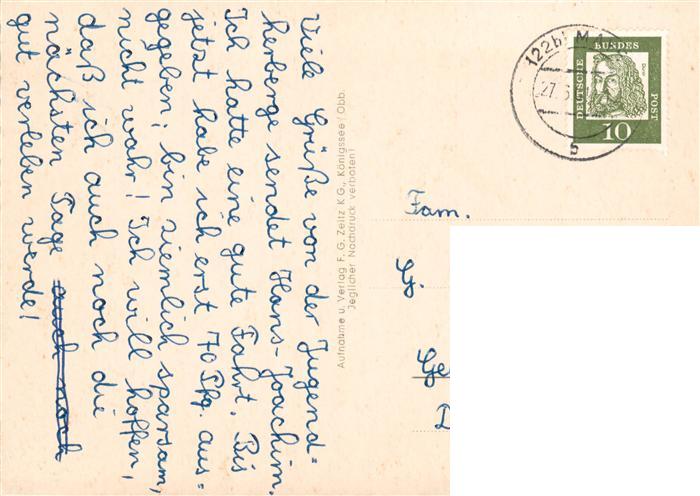 Viele Grüße von der Jugend=
herberge sendet Hans-Joachim.
Ich hatte eine gute Fahrt. Bis
jetzt habe ich erst 70 Pfg. aus=
gegeben; bin ziemlich sparsam,
nicht wahr! Ich will hoffen,
daß ich auch noch die
nächsten Tage auch noch
gut verleben werde!
Aufnahme u. Verlag F. G. Zeitz KG., Königssee/Obb.
Jeglicher Nachdruck verboten!
122b
27.
b
DEUTSCHE BUNDES POST
10
Fam.